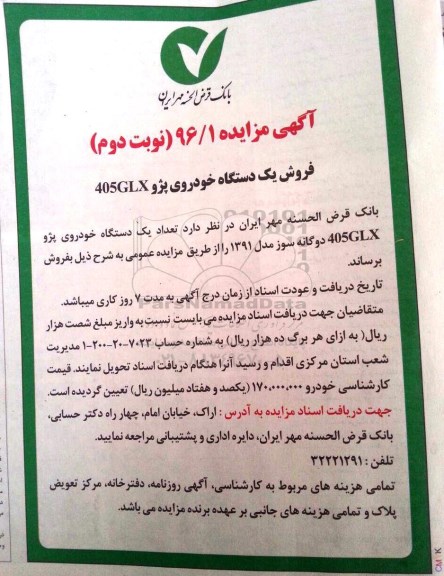 بانک قرض الحسنه مهر ایران
آگهی مزایده ۹۶/۱ (نوبت دوم)
فروش یک دستگاه خودروی پژو 405GLX
بانک قرض الحسنه مهر ایران در نظر دارد تعداد یک دستگاه خودروی پژو
405GLX دوگانه سوز مدل ۱۳۹۱ را از طریق مزایده عمومی به شرح ذیل بفروش
برساند.
تاریخ دریافت و عودت اسناد از زمان درج آگهی به مدت ۷ روز کاری میباشد.
ParsNamadData
متقاضیان جهت دریافت اسناد مزایده می بایست نسبت به واریز مبلغ شصت هزار
ریال( به ازای هر برگ ده هزار ریال) به شماره حساب ۷۰۲۳-۲۰-۲۰۰-۱ مدیریت
شعب استان مرکزی اقدام و رسید آنرا هنگام دریافت اسناد تحویل نمایند. قیمت
کارشناسی خودرو ۱۷۰,۰۰۰,۰۰۰ (یکصد و هفتاد میلیون ریال) تعیین گردیده است.
جهت دریافت اسناد مزایده به آدرس : اراک، خیابان امام، چهار راه دکتر حسابی،
بانک قرض الحسنه مهر ایران، دایره اداری و پشتیبانی مراجعه نمایید.
تلفن : ۳۲۲۲۱۲۹۱
تمامی هزینه های مربوط به کارشناسی، آگهی روزنامه، دفترخانه، مرکز تعویض
پلاک و تمامی هزینه های جانبی بر عهده برنده مزایده می باشد.